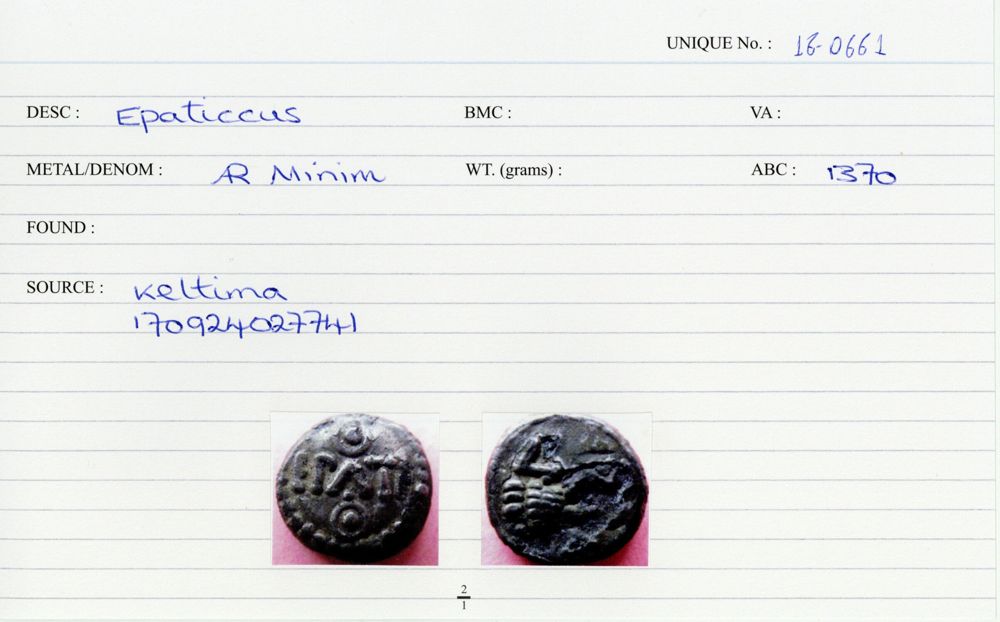 UNIQUE No. : 16-0661
DESC : Epaticcus BMC : VA :
METAL/DENOM : AR Minim WT. (grams) : ABC : 1370
FOUND :
SOURCE : Keltima
170924027741
EPATI
2
1